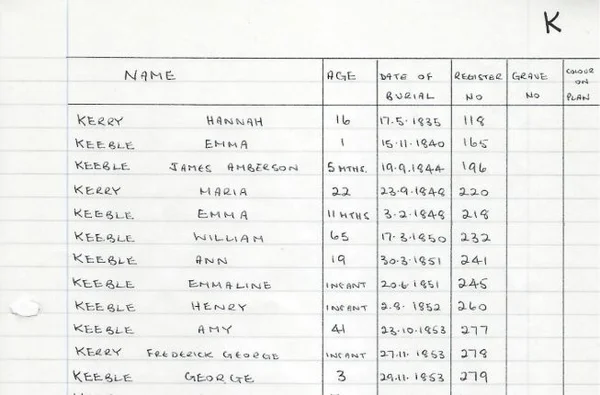 K
NAME AGE DATE OF BURIAL REGISTER NO GRAVE NO COLOUR ON PLAN
KERRY HANNAH 16 17.5.1835 118
KEEBLE EMMA 1 15.11.1840 165
KEEBLE JAMES AMBERSON 5 MTHS. 19.9.1844 196
KERRY MARIA 22 23.9.1848 220
KEEBLE EMMA 11 MTHS 3.2.1848 218
KEEBLE WILLIAM 65 17.3.1850 232
KEEBLE ANN 19 30.3.1851 241
KEEBLE EMMALINE INFANT 20.6.1851 245
KEEBLE HENRY INFANT 2.8.1852 260
KEEBLE AMY 41 23.10.1853 277
KERRY FREDERICK GEORGE INFANT 27.11.1853 278
KEEBLE GEORGE 3 29.11.1853 279